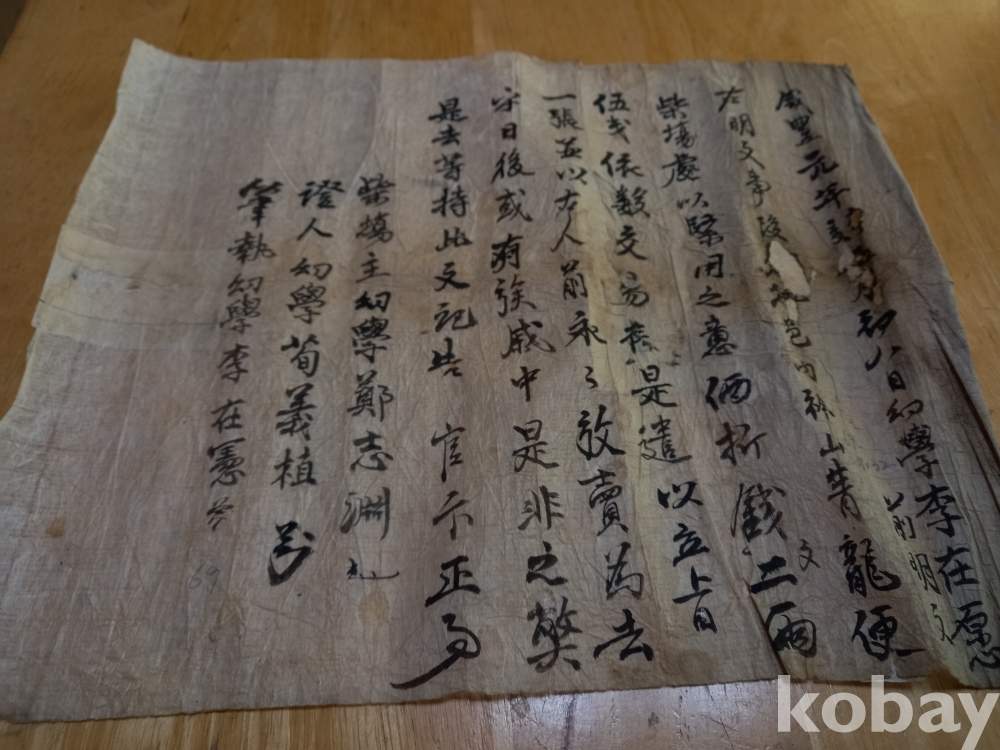 咸豐元年 月初八日幼學李在愿
前明文
右明文事段 邑內 山靑龍便
柴場處以緊用之意価折錢文二兩
伍戔依數交易 是遣以立上日
一張並以右人前永〻放賣爲去
乎日後或有族戚中是非之獘
是去等持此文記告官卞正事
柴塲主幼學鄭志淵
證人幼學荀義植
筆執幼學李在憲
kobay